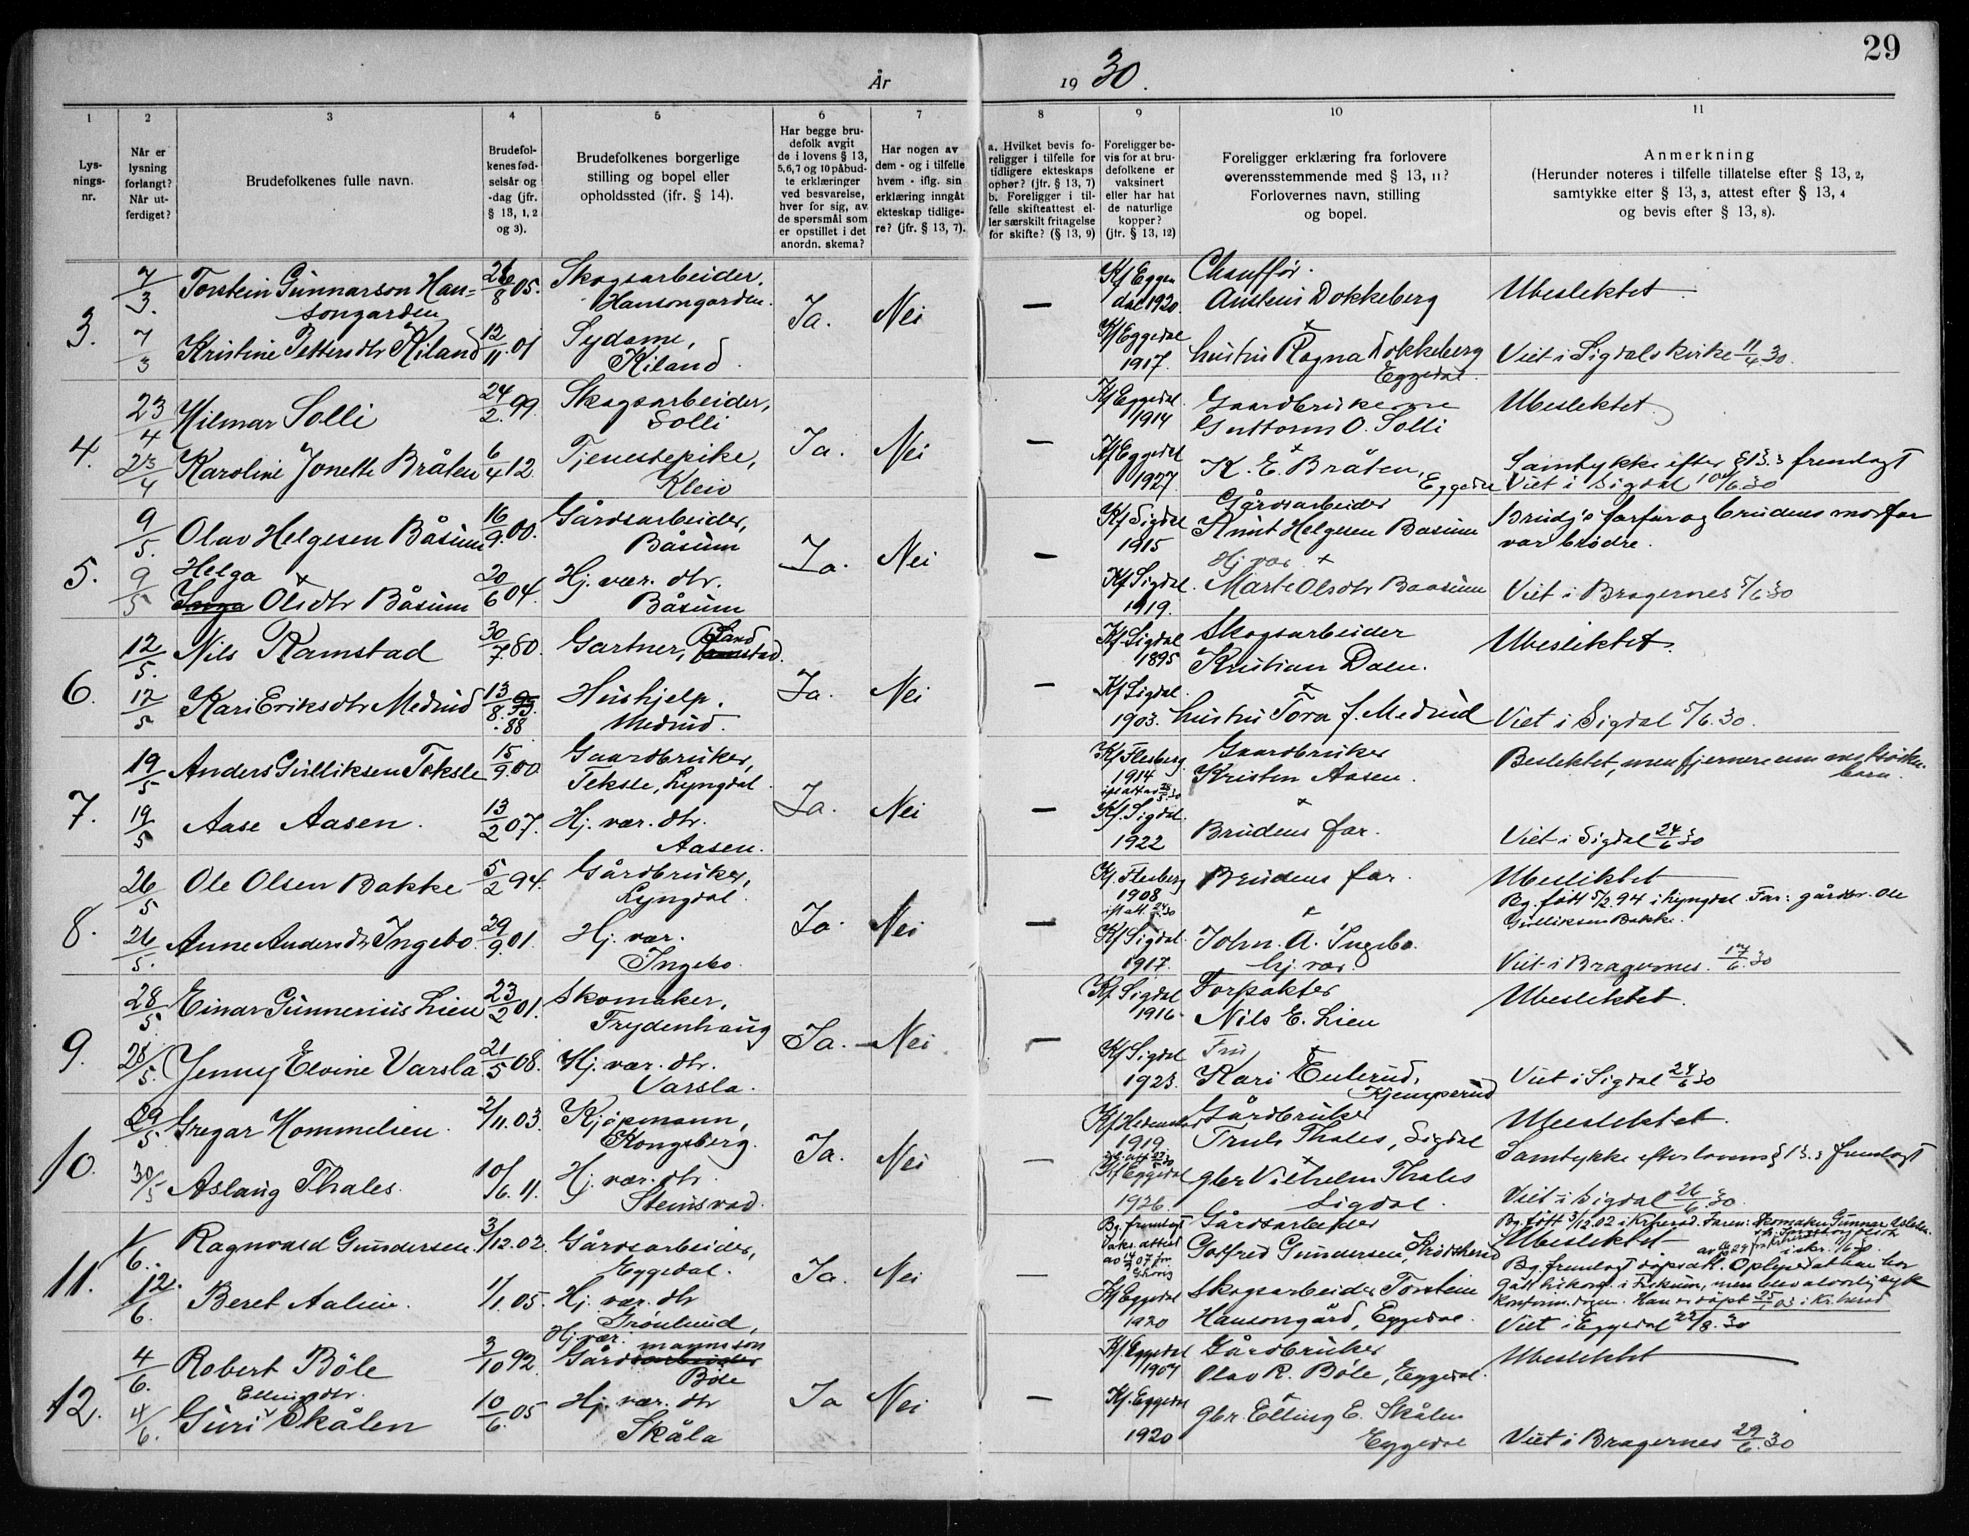 29
År 1930.
1 2 3 4 5 6 7 8 9 10 11
Lys-
nings-
nr.
Når er
lysning
forlangt?
Når ut-
ferdiget?
Brudefolkenes fulle navn.
Brudefol-
kenes fød-
selsår og
-dag (jfr.
§ 13, 1, 2
og 3).
Brudefolkenes borgerlige
stilling og bopel eller
opholdssted (ifr. § 14).
Har begge bru-
defolk avgit
de i lovens § 13,
5,6,7 og 10 påbud-
te erklæringer
ved besvarelse,
hver for sig, av
de spørsmål som
er opstillet i det
anordn. skema?
Har nogen av
dem - og i tilfelle
hvem - iflg. sin
erklæring inngåt
ekteskap tidlige-
re? (jfr. § 13, 7).
a. Hvilket bevis fo-
religger i tilfelle for
tidligere ekteskaps
ophør? (jfr. § 13, 7)
b. Foreligger i til-
felle skifteattest el-
ler særskilt fritagelse
for skifte? (§ 13, 9)
Foreligger be-
vis for at bru-
defolkene er
vaksinert
eller har hat
de naturlige
kopper?
(jfr. § 13, 12)
Foreligger erklæring fra forlovere
overensstemmende med § 13, 11?
Forlovernes navn, stilling
og bopel.
Anmerkning
(Herunder noteres i tilfelle tillatelse efter § 13, 2,
samtykke efter § 13, 3, attest efter § 13, 4
og bevis efter § 13, 8).
3.
7/3. Torstein Gunnarson Han=
songarden
/8 05. Skogsarbeider,
Hansongarden.
Ja. Nei —
Kf Eggedal 1920. Chauffør.
Austein Dokkeberg
Ubeslektet
7/3 Kristine Pettersdtr Kiland 12/11.01 Sydame,
Kiland.
Kf Eggedal
1917. hustru Ragna Dokkeberg
Eggedal.
Viet i Sigdals kirke 11/6.30.
4.
23/4 Hilmar Solli 24/2.99. Skogsarbeider,
Solli
Ja. Nei —
Kf Eggedal.
1914 Gaardbrukerne
Guttorm O. Solli
Ubeslektet.
23/4 Karoline Jonette Bråten 6/4 12. Tjenestepike,
Kleiv
Kf Eggedal
1927 K. E. Bråten,
Eggedal
Samtykke efter § 13.3 fremlagt
Viet i Sigdal 10/6.30
5.
9/5. Olav Helgesen Båsum 16/9.00. Gårdsarbeider,
Båsum
Ja. Nei —
Kf Sigdal
1915 Gårdsarbeider
Knut Helgesen Baasum
Brudg's farfar og brudens morfar
var brødre.
9/5 Helga
Inga Olsdtr Båsum 20/6 04. Hj. vær. dtr.
Båsum
Kf Sigdal.
1919. Hj. vær. +
Marte Olsdtr Baasum
Viet i Bragernes 5/6 30
6.
12/5. Nils Ramstad 30/7.80. Gartner,
Ja. Nei —
Kf. Sigdal
1895 Skogsarbeider
Kristian Dalen.
Ubeslektet.
12/5 Kari Eriksdtr Medrud 13/8.93.
.88
Hushjelp,
Medrud.
Kf Sigdal.
1903. hustru Tora f. Medrud
Viet i Sigdal 5/6.30.
7.
19/5 Anders Gulliksen Teksle 15/9.00. Gaardbruker,
Teksle, Lyngdal.
Ja. Nei —
Kf Flesberg
1914 Gaardbruker
Kristen Aasen.
Beslektet, men fjernere enn
barn.
19/5 Aase Aasen. 13/2 07. Hj. vær. dtr.
Aasen.
Kf. Sigdal.
1922 Brudens far.
Viet i Sigdal 24/6 30
8.
26/5 Ole Olsen Bakke 5/2 94. Gårdbruker,
Lyngdal.
Ja. Nei —
Kf. Flesberg
1908 Brudens far.
Ubeslektet
Bg. født 5/2 94 i Lyngdal. Far: gårdbr. Ole
Gulliksen Bakke.
26/5. Anne Andersdtr Ingebo. 29/9.01. Hj. vær.
Ingebo.
Kf Sigdal.
1917. John. A. Ingebo.
hj. vær.
Viet i Bragernes. 17/6.30
9.
28/5. Einar Gunnerius Lien 23/2 01. Skomaker,
Frydenhaug
Ja. — Nei —
Kf. Sigdal
1916. Forpakter
Nils E. Lien
Ubeslektet.
28/5. Jenny Elvine Varsla. 21/5 08. Hj. vær. dtr.
Varsla.
Kf Sigdal
1923. Fru
Kari Enlerud,
Kjempenrud
Viet i Sigdal 24/6 30
10.
29/5. Gregar Hommelien. 2/11.03. Kjøpmann,
Kongsberg.
Ja. Nei —
1919. Gårdbruker
Truls Thales, Sigdal
Ubeslektet.
30/5 Aslaug Thales. 10/6.11. Hj. vær. dtr
Steinsrad.
Kf Eggedal
1926. gbr Vilhelm Thales
Sigdal.
Samtykke efter lovens § 13.3 fremlagt
Viet i Sigdal 26/6.30.
11.
1/6. Ragnvald Gundersen 3/12.02. Gårdsarbeider,
Eggedal.
Ja. Nei —
Bg. fremlagt
vaks. attest
Gårdsarbeider
Gotfred Gundersen, Krødsherad
Bg. født 3/12 02 i Kr.herad. Faren: Skomaker Gunnar
Ubeslektet
Bg. fremlagt dåpsatt. Oplyser at han har
12./6 Beret Aalien. 1/1.05. Hj. vær. dtr
Grønlund,
Kf Eggedal
1920 Skogsarbeider Torstein
Hansongård, Eggedal.
gått til konf. i Fiskum, men blev alvorlig syk
konform.dagen. Han er døpt 25/1 03 i Kr.herad
Viet i Eggedal 22/8.30
12.
4/6. Robert Böle 3/10 92. Hj. vær. mannsson
Gårdsarbeider
Böle
Ja Nei —
Kf. Eggedal
1907 Gårdbruker
Olav R. Böle, Eggedal.
Ubeslektet
4/6. Ellingsdtr.
Guri Skålen 10/6.05 Hj. vær. dtr
Skåla
Kf. Eggedal
1920 gbr. Elling E. Skålen
Eggedal
Viet i Bragernes 29/6.30